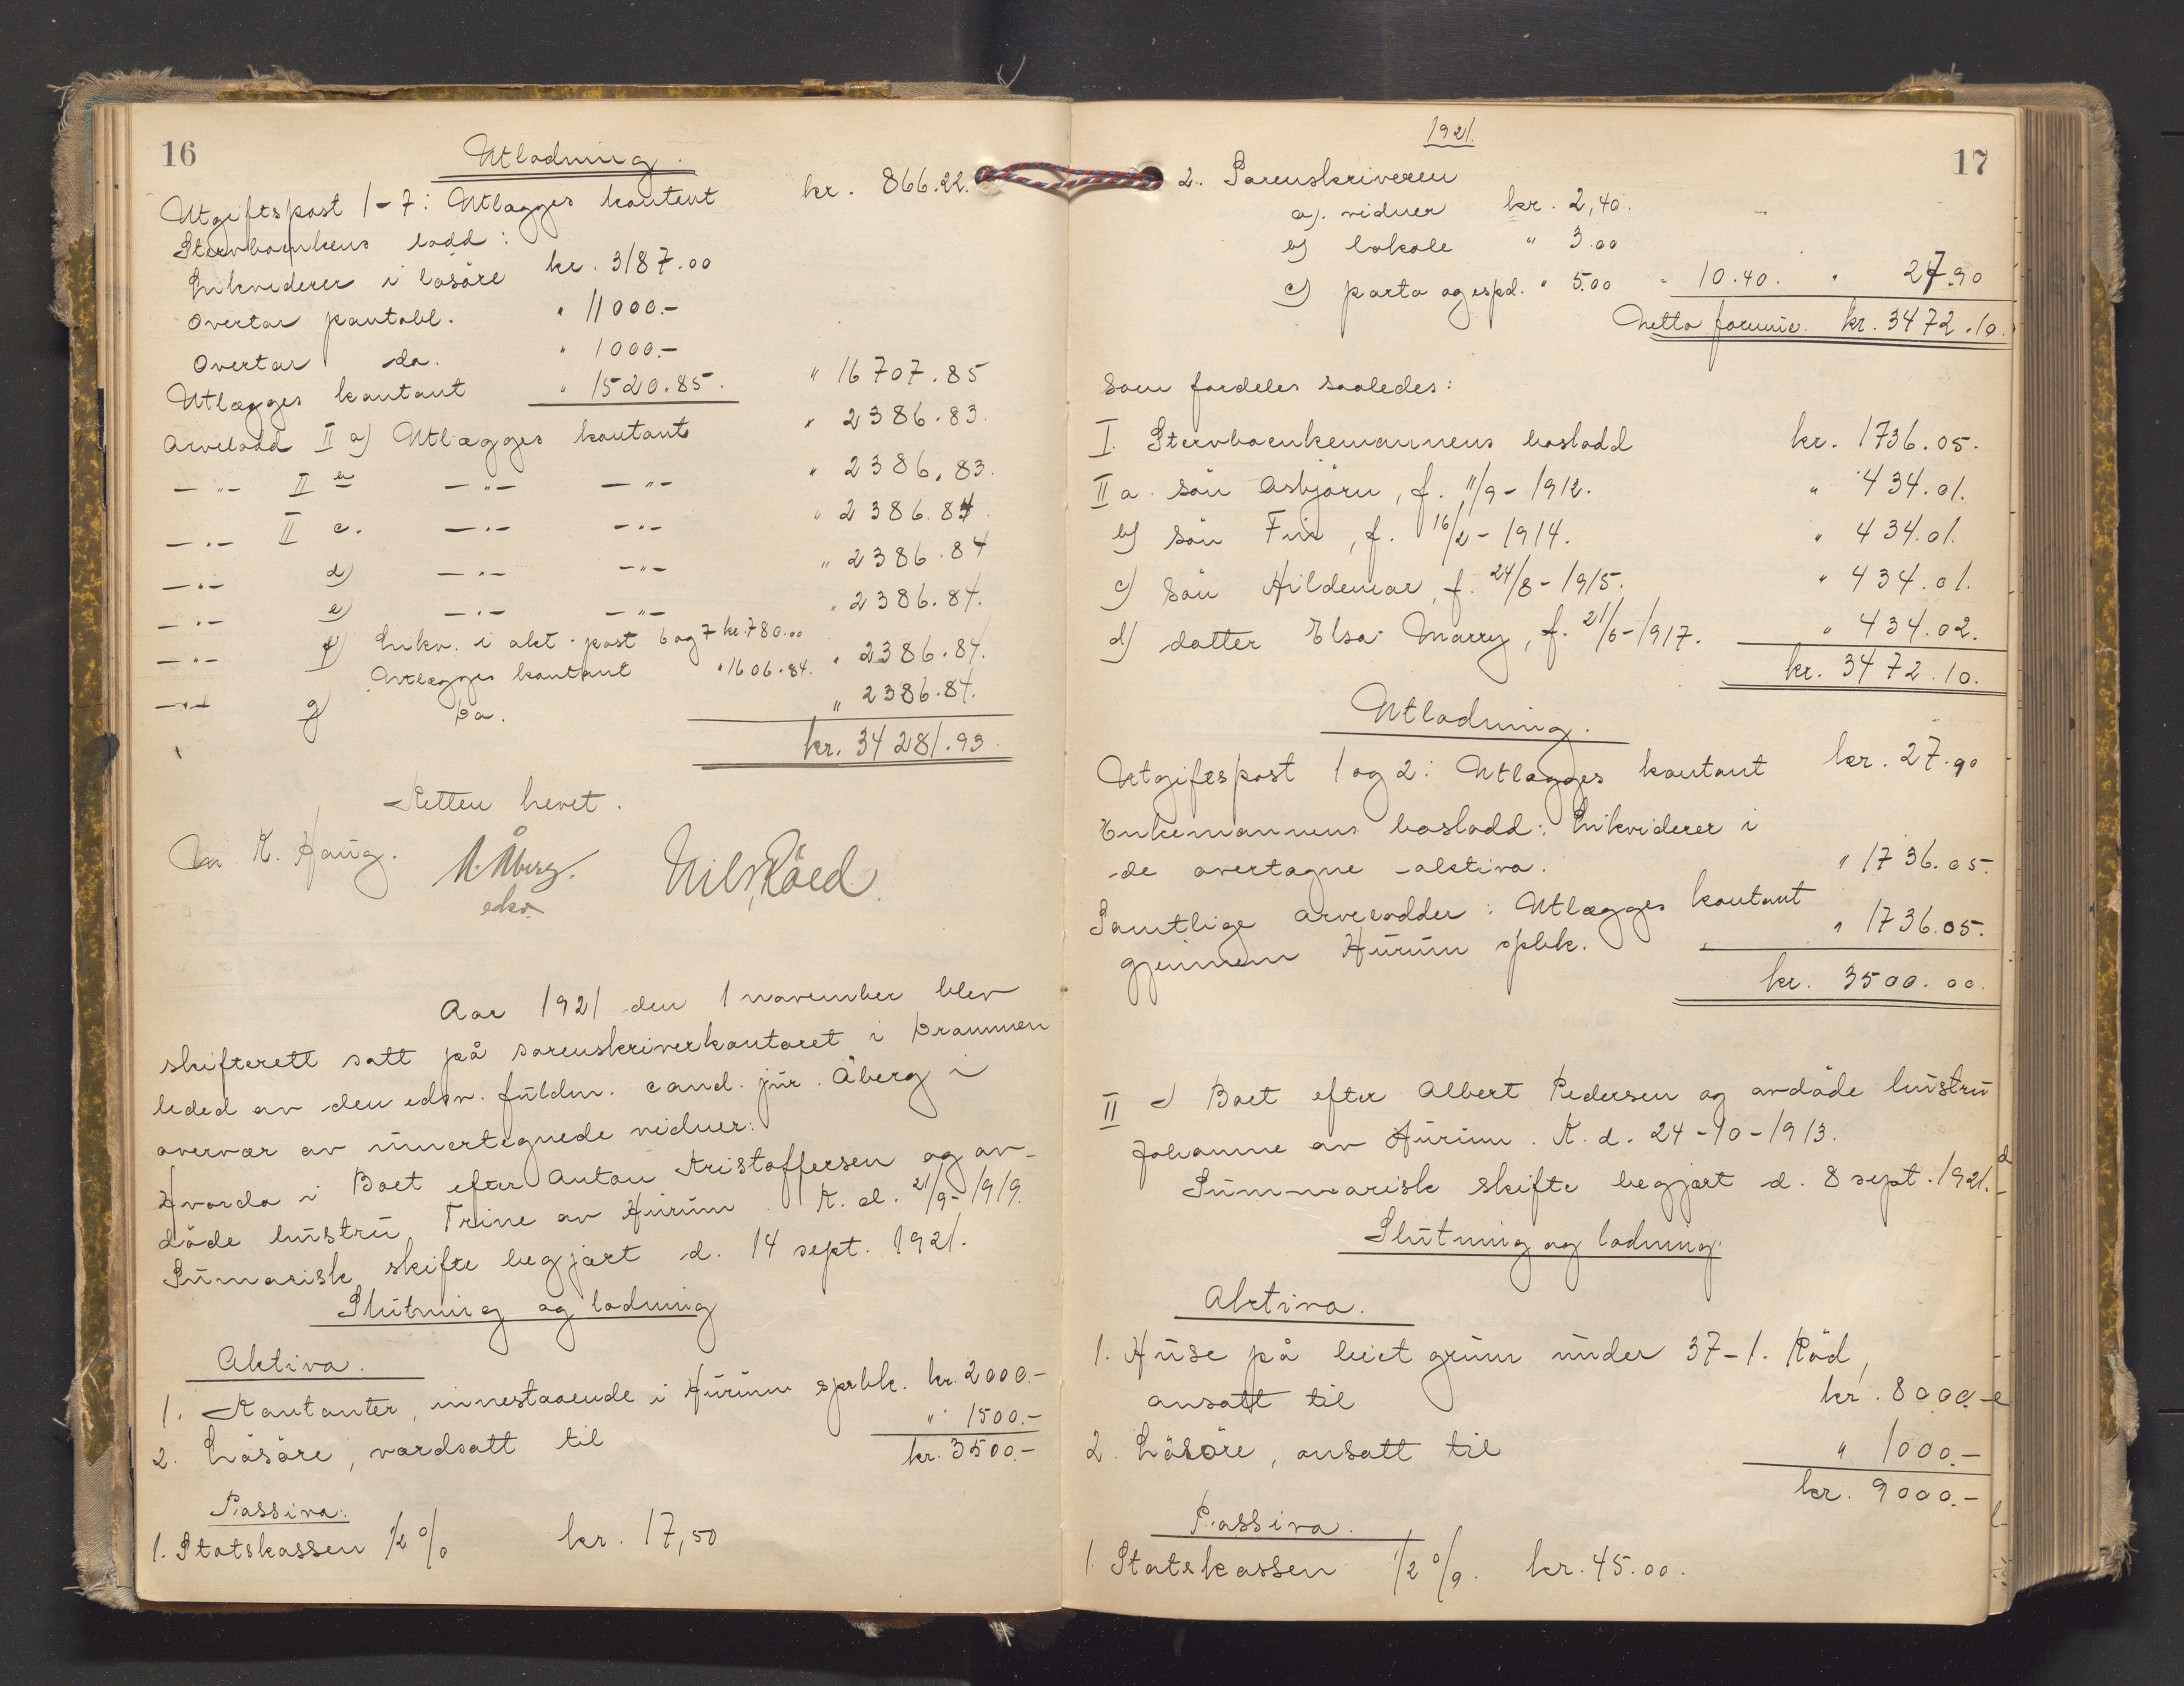 16
Utlodning.
Utgiftspost 1-7: Utlægges kontant kr. 866.22.
Stervboenkens lodd:
Likviderer i løsöre kr. 3187.00
Overtar pantobl. " 11000.-
Overtar do. " 1000.-
Utlægges kontant " 1520.85. " 16707.85
Arvelodd II a) Utlægges kontant " 2386.83.
-"- II b -"- -"- " 2386.83.
-"- II c. -"- -"- " 2386.84.
-"- d) -"- -"- " 2386.84
-"- e) -"- -"- " 2386.84.
-"- f) Likv. i akt. post 6 og 7 kr. 780.00
Utlægges kontant " 1606.84. " 2386.84.
-"- g) Do. " 2386.84.
kr. 34281.93.
Retten hevet.
K. Haug. N. Åberg. Nils Röed.
edsv.
Aar 1921 den 1 november blev
skifterett satt på sorenskriverkontoret i Drammen
leded av den edsv. fuldm. cand. jur. Åberg i
overvær av undertegnede vidner:
Hvorda i Boet efter Anton Kristoffersen og av-
döde hustru Trine av Hurum. K. d. 21/9-1919.
Sumarisk skifte begjært d. 14 sept. 1921.
Slutning og lodning
Aktiva.
1. Kontanter, innestaaende i Hurum sprbk. kr. 2000.-
2. Lösöre, værdsatt til " 1500.-
kr. 3500.-
Passiva:
1. Statskassen 1/2 % kr. 17,50
1921.
17
2. Sorenskriveren
a). vidner kr. 2,40.
b) lokale " 3.00
c) porto og expd. " 5.00 " 10.40. " 27.90
Netto formue. kr. 3472.10.
Som fordeles saaledes:
I. Stervboenkemannens boslodd kr. 1736.05.
II a. Sön Asbjörn, f. 11/9-1912. " 434.01.
b) Sön Fin, f. 16/2-1914. " 434.01.
c) Sön Hildemar, f. 24/8-1915. " 434.01.
d) datter Elsa Marry, f. 21/6-1917. " 434.02.
kr. 3472.10.
Utlodning.
Utgiftspost 1 og 2: Utlægges kontant kr. 27.90
Enkemannens boslodd: Likviderer i
de overtagne aktiva. " 1736.05.
Samtlige arvelodder: Utlægges kontant
gjennem Hurum spbk. " 1736.05.
kr. 3500.00.
II I Boet efter Albert Pedersen og avdöde hustru
Johanne av Hurum. K. d. 24-10-1913.
Summarisk skifte begjært d. 8 sept. 1921.
Slutning og lodning.
Aktiva.
1. Huse på leiet grunn under 37-1. Röd,
ansatt til kr. 8000.-
2. Lösöre, ansatt til " 1000.-
kr. 9000.-
Passiva.
1. Statskassen 1/2 %. kr. 45.00.